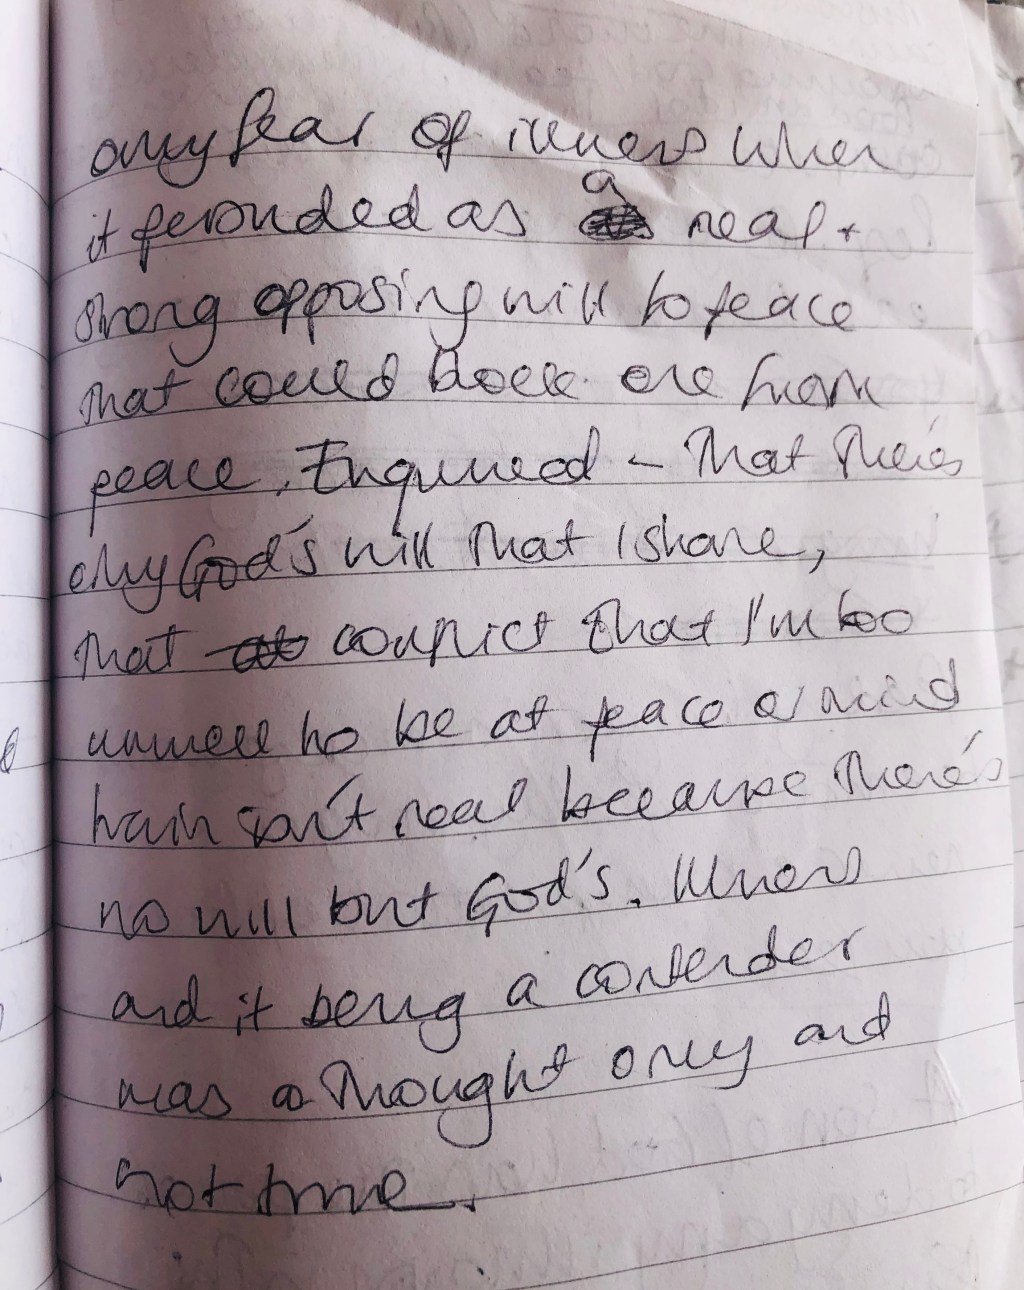 only fear of illness when
it persuaded as a real +
strong opposing will to peace
that could block one from
peace. Enquired – that there's
only God's will that I share,
that conflict that I'm too
unwell to be at peace of mind
isn't real because there's
no will but God's. Illness
and it being a contender
was a thought only and
not true.